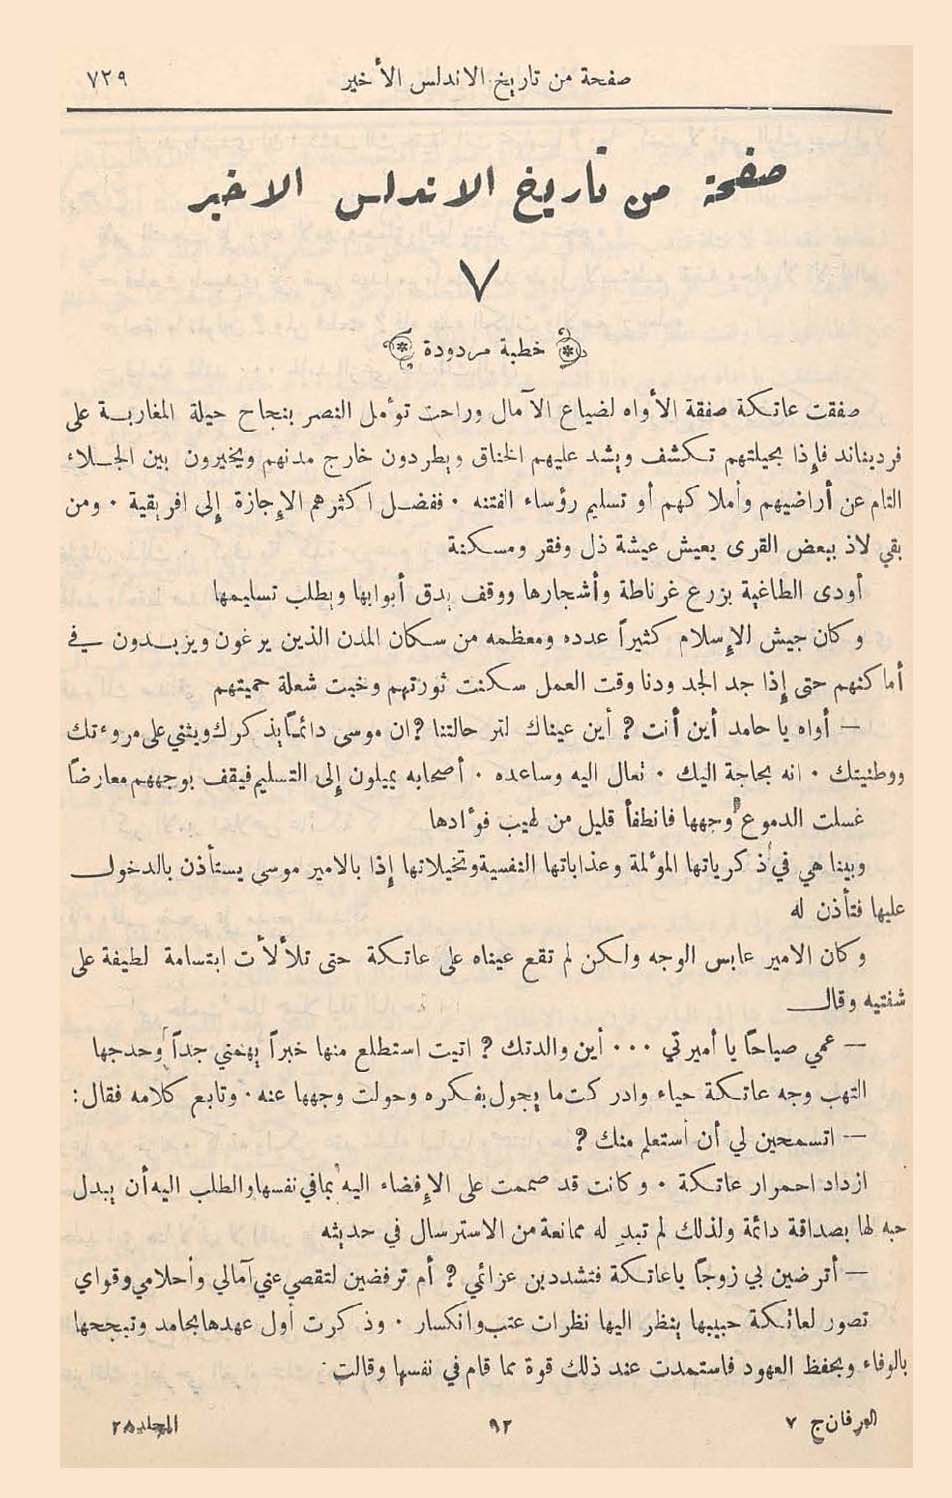 صفحة من تاريخ الاندلس الأخير ٧٢٩
صفحة من تاريخ الاندلس الاخير
٧
خطبة مردودة
صفقت عاتكة صفقة الأواه لضياع الآمال وراحت تؤمل النصر بنجاح حيلة المغاربة على
فرديناند فإذا بحيلتهم تكشف ويشد عليهم الخناق ويطردون خارج مدنهم ويخيرون بين الجلاء
التام عن أراضيهم وأملاكهم أو تسليم رؤساء الفتنه . ففضل اكثرهم الإجازة إلى افريقية . ومن
بقي لاذ ببعض القرى يعيش عيشة ذل وفقر ومسكنة
أودى الطاغية بزرع غرناطة وأشجارها ووقف يدق أبوابها ويطلب تسليمها
وكان جيش الإسلام كثيراً عدده ومعظمه من سكان المدن الذين يرغون ويزبدون في
أماكنهم حتى إذا جد الجد ودنا وقت العمل سكنت ثورتهم وخبت شعلة حميتهم
— أواه يا حامد أين أنت ؟ أين عيناك لتر حالتنا ؟ ان موسى دائماً يذكرك ويثني على مروءتك
ووطنيتك . انه بحاجة اليك . تعال اليه وساعده . أصحابه يميلون إلى التسليم فيقف بوجههم معارضاً
غسلت الدموع وجهها فانطفأ قليل من لهيب فؤادها
وبينا هي في ذكرياتها المؤلمة وعذاباتها النفسية وتخيلاتها إذا بالامير موسى يستأذن بالدخول
عليها فتأذن له
وكان الامير عابس الوجه ولكن لم تقع عيناه على عاتكة حتى تلألأت ابتسامة لطيفة على
شفتيه وقال
— عمي صباحاً يا أميرتي ... أين والدتك ؟ اتيت استطلع منها خبراً يهمني جداً وحدجها
التهب وجه عاتكة حياء وادركت ما يجول بفكره وحولت وجهها عنه . وتابع كلامه فقال :
— اتسمحين لي أن أستعلم منك ؟
ازداد احمرار عاتكة . وكانت قد صممت على الإفضاء اليه بما في نفسها والطلب اليه أن يبدل
حبه لها بصداقة دائمة ولذلك لم تبدِ له ممانعة من الاسترسال في حديثه
— أترضين بي زوجاً يا عاتكة فتشددين عزائمي ؟ أم ترفضين لتقصي عني آمالي وأحلامي وقواي
تصور لعاتكة حبيبها ينظر اليها نظرات عتب وانكسار . وذكرت أول عهدها بحامد وتبجحها
بالوفاء وبحفظ العهود فاستمدت عند ذلك قوة مما قام في نفسها وقالت
العرفان ج ٧ ٩٢ المجلد ٢٨